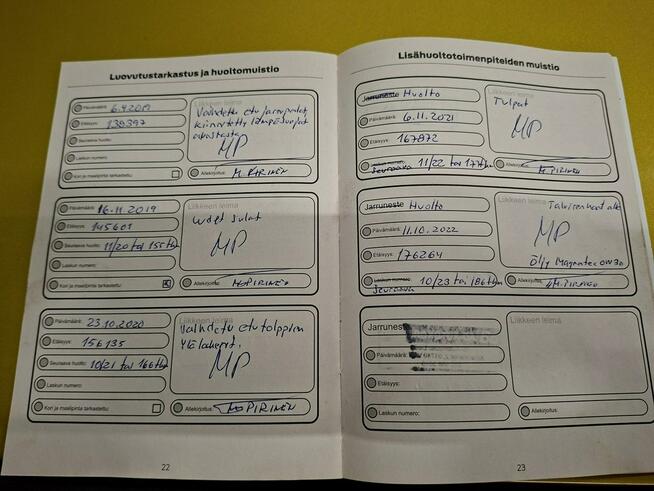 Luovutustarkastus ja huoltomuistio
Päivämäärä: 6.4.2019
Etäisyys: 138397
Seuraava huolto:
Laskun numero:
Kori ja maalipinta tarkastettu:
Liikkeen leima
Vaihdettu etu jarrupalat,
MP
Allekirjoitus:
Päivämäärä: 16.11.2019
Etäisyys: 145601
Seuraava huolto: 11/20 tai 155tkm
Laskun numero:
Kori ja maalipinta tarkastettu:
Liikkeen leima
uudet sulat
MP
Allekirjoitus: M PIRINEN
Päivämäärä: 23.10.2020
Etäisyys: 156135
Seuraava huolto: 10/21 tai 166tkm
Laskun numero:
Kori ja maalipinta tarkastettu:
Liikkeen leima
Vaihdettu etutolppien
MP
Allekirjoitus: PIRINEN
22
Lisähuoltotoimenpiteiden muistio
Jarruneste Huolto
Päivämäärä: 6.11.2021
Etäisyys: 167872
Laskun numero:
seuraava 11/22 tai 177tkm
Liikkeen leima
Tulpat
MP
Allekirjoitus: M. PIRINEN
Jarruneste Huolto
Päivämäärä: 11.10.2022
Etäisyys: 176264
Laskun numero:
seuraava 10/23 tai 186tkm
Liikkeen leima
MP
Öljy Magnatec 0W30
Allekirjoitus:
Jarruneste
Päivämäärä:
Etäisyys:
Laskun numero:
Liikkeen leima
Allekirjoitus:
23